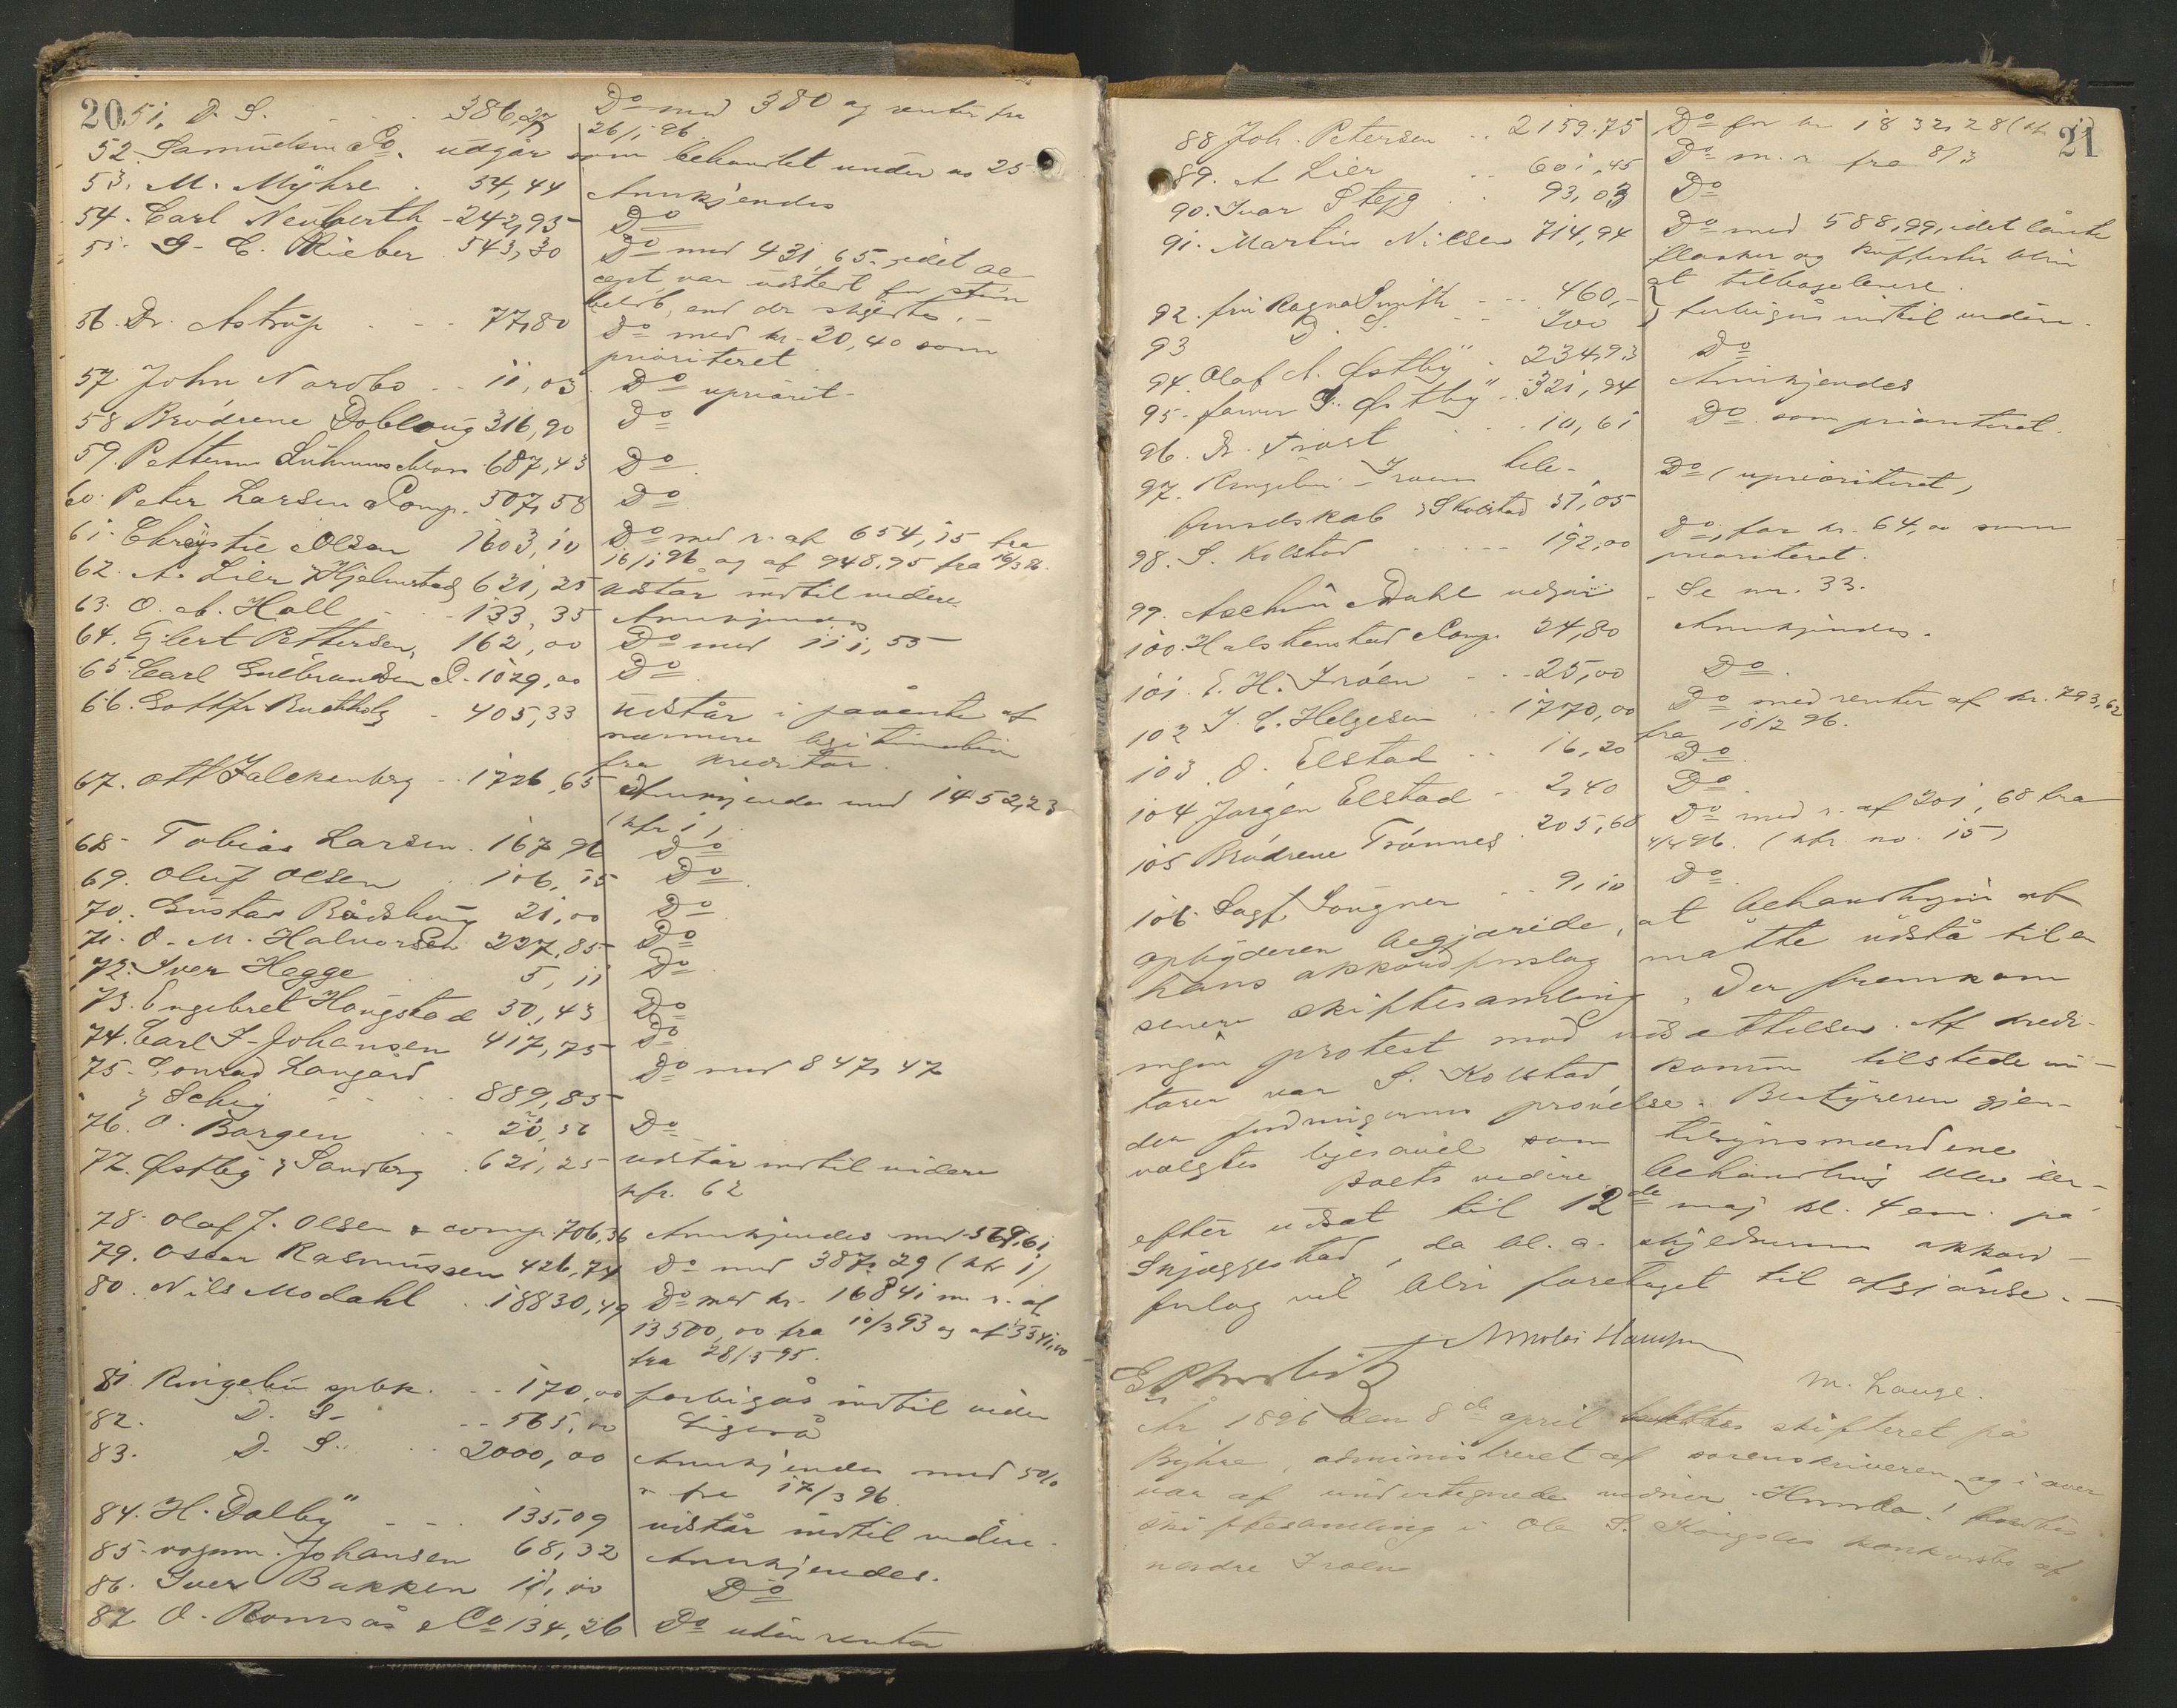 20
51. D. S. 386,27 Do med 380 og renter fra
26/1 96.
52. Samuelsen Co. udgår som behandlet under no 25
53. M. Myhre 54,44 Anerkjendes
54. Carl Neuberth 242,95 Do
55. G. C. Rieber 543,30 Do med 431,65, idet ac-
cept var udstedt for større
beløb, end der skyldtes. -
56. Dr. Astrup 77,80 Do med kr. 20,40 som
prioriteret
57. John Nordbo 11,03 Do upriorit.
58 Brødrene Dobloug 316,90 Do
59. Petterne 687,43 Do
60. Peter Larsen Comp. 507,58 Do
61. Christie Olsen 1603,10 Do med r. af 654,15 fra
16/1 96 og af 948,95 fra 16/3 96.
62. A. Lier Hjelmstad 621,25 udstår indtil videre
63. O. A. Hall 133,35 Anerkjendes
64. Eilert Pettersen 162,00 Do med 111,55
65. Carl Gulbrandsen 1029,00 Do
66. Gottfr Buchholz 405,33 udstår i påvente af
nærmere legitimation
fra kreditor.
67. Ott Falckenberg 1726,65 Anerkjendes med 1452,23
(kfr 1).
68. Tobias Larsen 167,96 Do
69. Oluf Olsen 106,15 Do
70. Gustav 21,00 Do
71. O. M. Halvorsen 227,85 Do
72. Iver Hegge 5,11 Do
73. Engebret Haugstad 30,43 Do
74. Carl F. Johansen 417,75 Do
75. Conrad Langård Do med 847,47
& Schig 889,85
76. O. Børgen 20,56 Do
77. Østby & Sandberg 621,25 udstår indtil videre
kfr. 62
78. Olaf J. Olsen & comp. 706,36 Anerkjendes med 569,61
79. Oscar Rasmussen 426,74 Do med 387,29 (kfr 1)
80. Nils Modahl 18830,49 Do med kr. 16841 m. r. af
13500,00 fra 10/3 93 og af 3341,00
fra 28/3 95.
81. Ringebu spbk. 170,00 forbigås indtil videre
82. D. S. 565,00 Ligeså
83. D. S. 2000,00 Anerkjendes med 5%
r. fra 17/3 96.
84. H. Dalby 135,09 udstår indtil videre.
85. vognm. Johansen 68,32 Anerkjendes.
86. Iver Bakken 11,00 Do
87. O. Romsås & Co 134,26 Do uden renter
21
88 Joh. Petersen 2159.75 Do for kr 1832,28 (kfr 1)
89. A Lier 601,45 Do m. r. fra 8/3
90. Ivar Stejg 93,03 Do
91. Martin Nilsen 714,94 Do med 588,99, idet lånte
flasker og kufferter blir
at tilbagelevere.
92. fru Ragna Smith 460,- forbigås indtil videre.
93 D. S. 300
94. Olaf A. Østby 234,93 Do
95. S. Østby 321,94 Anerkjendes
96. Dr. Trost 10,61 Do som prioriteret.
97. Ringebu - Froen tele- Do (uprioriteret)
fonselskab, S Kolstad 31,05
98. S. Kolstad 192,00 Do, for kr. 64,00 som
prioriteret.
99. Aschim Dahl udgår - Se nr. 33.
100. Halstenstad Comp. 24,80 Anerkjendes.
101. E. H. Frøen 25,00 Do
102 J. C. Helgesen 1770,00 Do med renter af kr. 793,62
fra 18/2 96.
103. O. Elstad 16,20 Do
104. Jørgen Elstad 2,40 Do
105 Brødrene Trønnes 205,68 Do med r. af 201,68 fra
4/4 96. (kfr no. 15)
106. Sagf. Sougner 9,10 Do
opbyderen begjærede, at behandlingen af
hans akkordforslag måtte udstå til en
senere skiftesamling. Der fremkom
ingen protest mod udsættelsen. Af kredi-
torer var S. Kolstad kommen tilstede un-
der fordringernes prøvelse. Bestyreren gjen-
valgtes ligesåvel som tilsynsmændene
Boets videre behandling blev der-
efter udsat til 12te maj kl. 4 em. på
Skjæggestad, da bl. a. skyldnerens akkord-
forlag vil bli foretaget til afgjørelse. -
Nikolai
M. Lauge.
År 1896 den 8de april sattes skifteret på
Byhre, administreret af sorenskriveren og i over
vær af undertegnede vidner. Hvorda! holdtes
skiftesamling i Ole S. Kongslis konkursbo af
nordre Froen